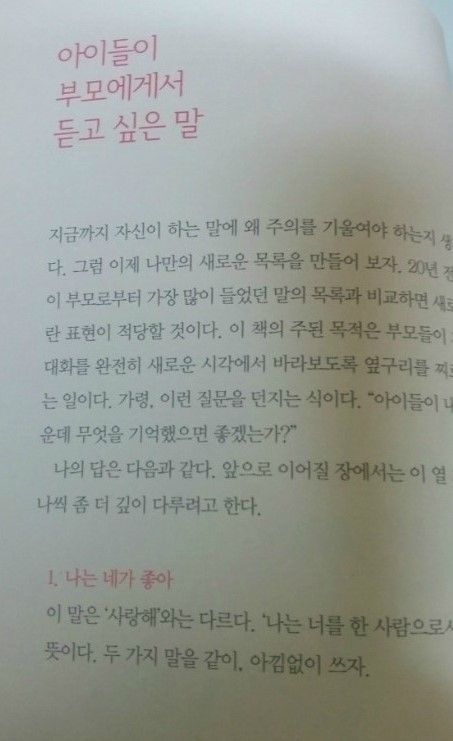 아이들이
부모에게서
듣고 싶은 말
지금까지 자신이 하는 말에 왜 주의를 기울여야 하는지
다. 그럼 이제 나만의 새로운 목록을 만들어 보자. 20년
이 부모로부터 가장 많이 들었던 말의 목록과 비교하면
란 표현이 적당할 것이다. 이 책의 주된 목적은 부모들이
대화를 완전히 새로운 시각에서 바라보도록 옆구리를
는 일이다. 가령, 이런 질문을 던지는 식이다. “아이들이
운데 무엇을 기억했으면 좋겠는가?”
나의 답은 다음과 같다. 앞으로 이어질 장에서는 이 열
나씩 좀 더 깊이 다루려고 한다.
1. 나는 네가 좋아
이 말은 ‘사랑해’와는 다르다. ‘나는 너를 한 사람으로서
뜻이다. 두 가지 말을 같이, 아낌없이 쓰자.